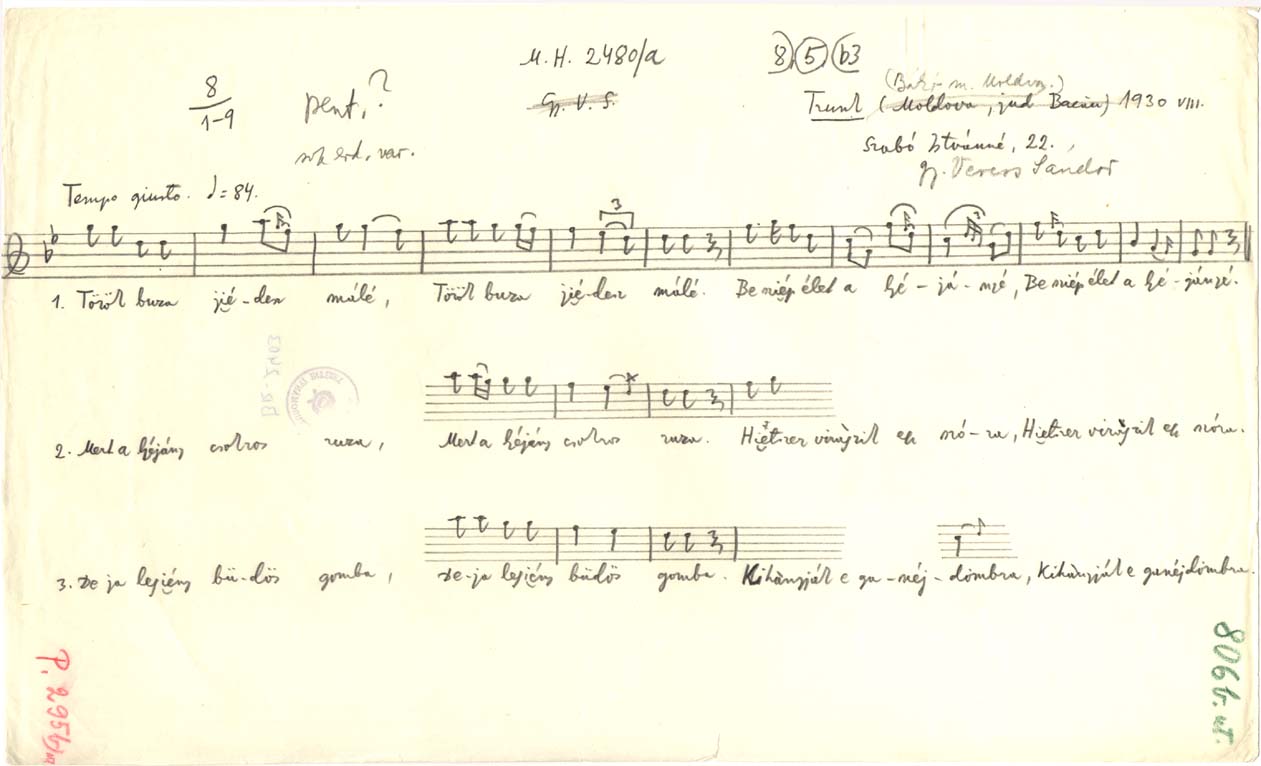 M. H. 2480/a
8 5 b3
8
1-9
pent, ?
Gy. V. S.
(Bákó m. Moldva.)
Trunk (Moldova, jud Bacău) 1930 VIII.
sok erd. var.
Szabó Istvánné, 22.
gy. Veress Sándor
Tempo giusto. = 84.
3
1. Töröt buza jié-den málé, Töröt buza jié-den málé. Be sziép élet a lié-já-nyé, Be sziép élet a lié-jányé.
Br. 2403
2. Mert a liéjány csokros ruza, Mert a liéjány csokros ruza. Hiétszer virágzik ety nyó-ra, Hiétszer virágzik ety nyóra.
3. De ja legiény bü-dös gomba, De-ja legiény büdös gomba. Kihánnyják e ga-néj-dombra, Kihánnyják e ganéjdombra.
P. 295b/
806 b. ut.